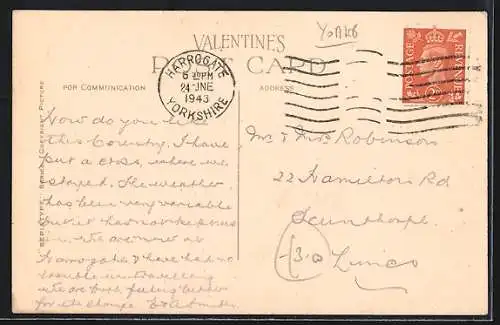 YORKS
VALENTINES
POST CARD
FOR COMMUNICATION
ADDRESS
HARROGATE
24 JNE
1943
YORKSHIRE
POSTAGE REVENUE
How do you like
this Coventry. I have
put a cross, where we
stayed. The weather
has been very variable
but it has not kept us
in. We are now at
Harrogate & have had no
trouble in travelling
we are both feeling better
for the change
Mr & Mrs Robinson
22 Hamilton Rd
Scunthorpe
Lincs